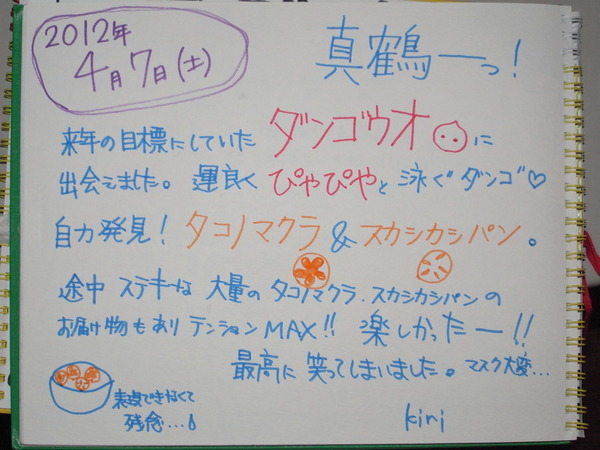 2012年
4月7日(土)
真鶴ーっ!
来年の目標にしていた ダンゴウオ に
出会えました。運良く ぴやぴやと 泳ぐダンゴ♡
自力発見! タコノマクラ & スカシカシパン。
途中 ステキな 大量の タコノマクラ、スカシカシパンの
お届け物もあり テンションMAX!! 楽しかったー!!
最高に 笑ってしまいました。マスク大変…
表現できなくて
残念…
kiri